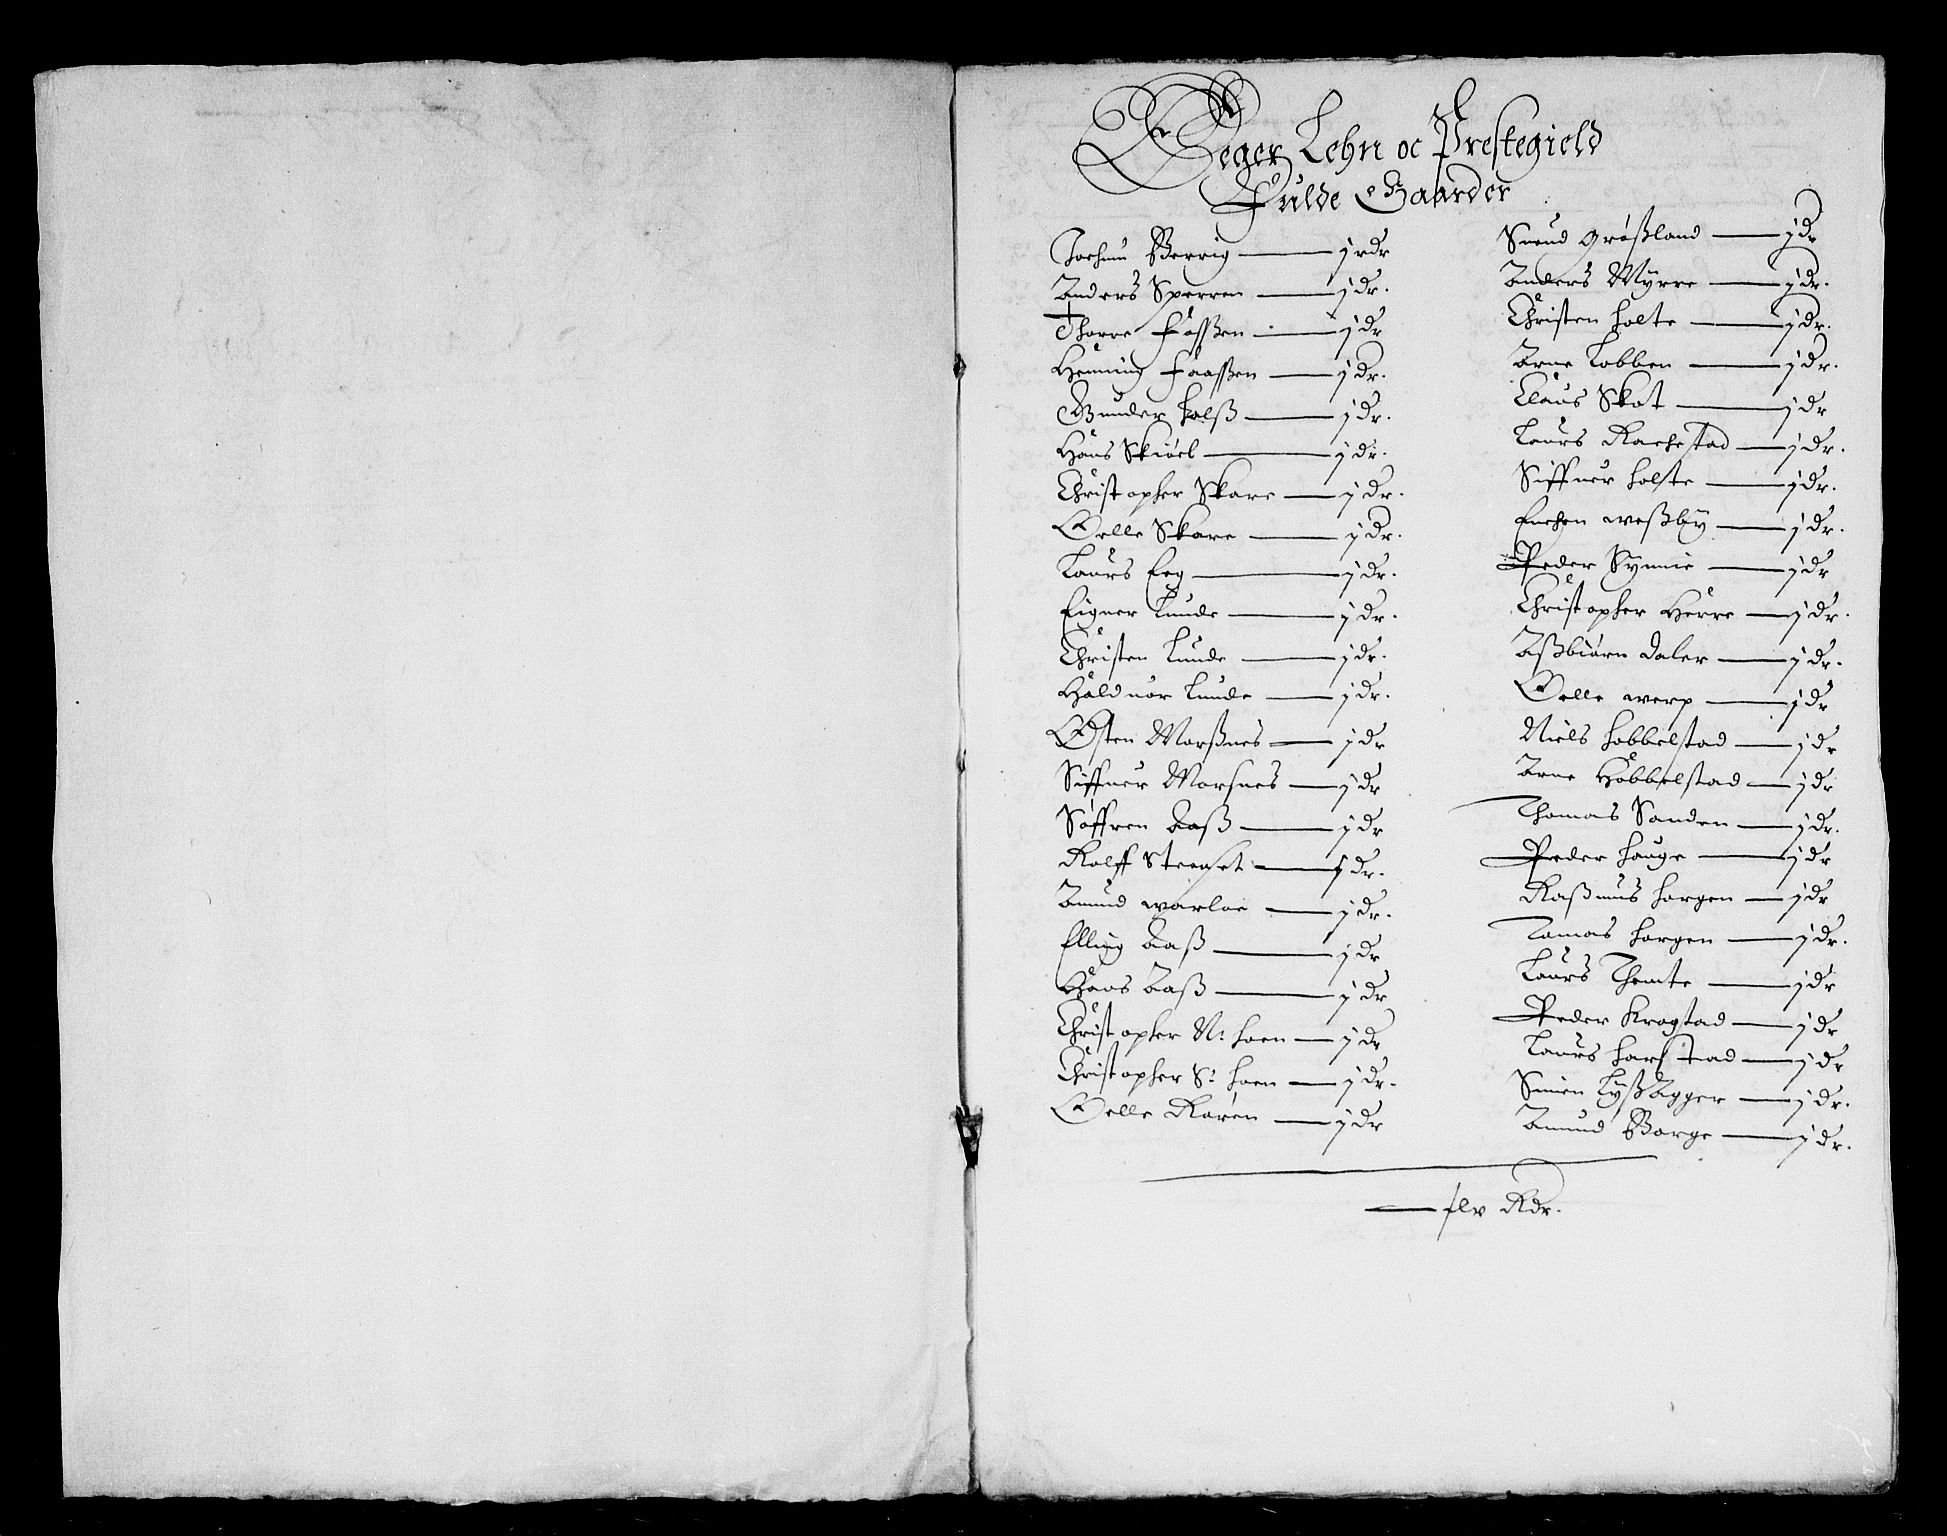 Eger Lehn oc Prestegield
Fulde Gaarder
Jochum Berrig — j rdr
Anders Sperren — j dr.
Thorre Fossen — j dr
Henning Faassen — j dr.
Gunder Holß — j dr.
Hans Skiøel — j dr.
Christopher Skare — j dr.
Oelle Skare — j dr.
Laurs Eeg — j dr.
Eigner Lunde — j dr.
Christen Lunde — j dr.
Halduor Lunde — j dr.
Østen Morßnes — j dr
Siffuer Morsnes — j dr
Søffren Aaß — j dr
Rolff Steenset — j dr.
Amund Warloe — j dr.
Elling Aaß — j dr
Hans Aaß — j dr
Christopher N: Hoen — j dr
Christopher S: Hoen — j dr.
Oelle Koren — j dr
Suend Grøßland — j dr
Anders Myrre — j dr.
Christen Holte — j dr.
Arne Lobben — j dr.
Claus Skot — j dr
Laurs Kachestad — j dr.
Siffuer Holte — j dr.
Enchen Weßby — j dr.
Peder Synnie — j dr
Christopher Herre — j dr.
Aßbiørn Daler — j dr.
Oelle Werp — j dr
Niels Hobbelstad — j dr
Arne Hobbelstad — j dr
Thomas Sanden — j dr.
Peder Hauge — j dr
Raßmus Horgen — j dr
Tomas Horgen — j dr.
Laurs Themte — j dr
Peder Krogstad — j dr
Laurs Harstad — j dr
Suien Lyßagger — j dr.
Amund Borge — j dr.
— xlv Rdr.